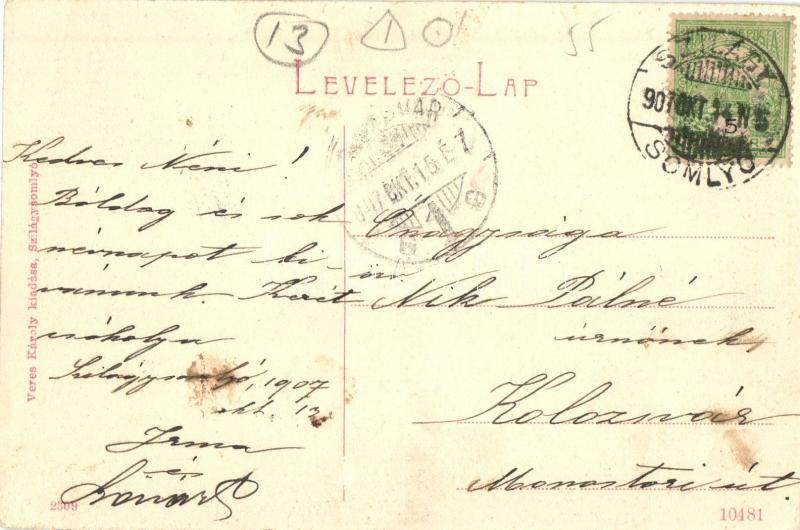 13 1 0 55
LEVELEZŐ-LAP
SZILÁGY
907 OKT. 14 N 5
SOMLYÓ
907 OKT. 15 É 7
1
Kedves Néni!
Boldog és sok
névnapot ki-
vánunk. Kezét
csókolja
Szilágysomlyó, 1907
okt. 13
Irma
és
Őnagysága
özv
Nik Pálné
úrnőnek
Kolozsvár
Monostori út.
Veres Károly kiadása, Szilágysomlyó
2309
10481